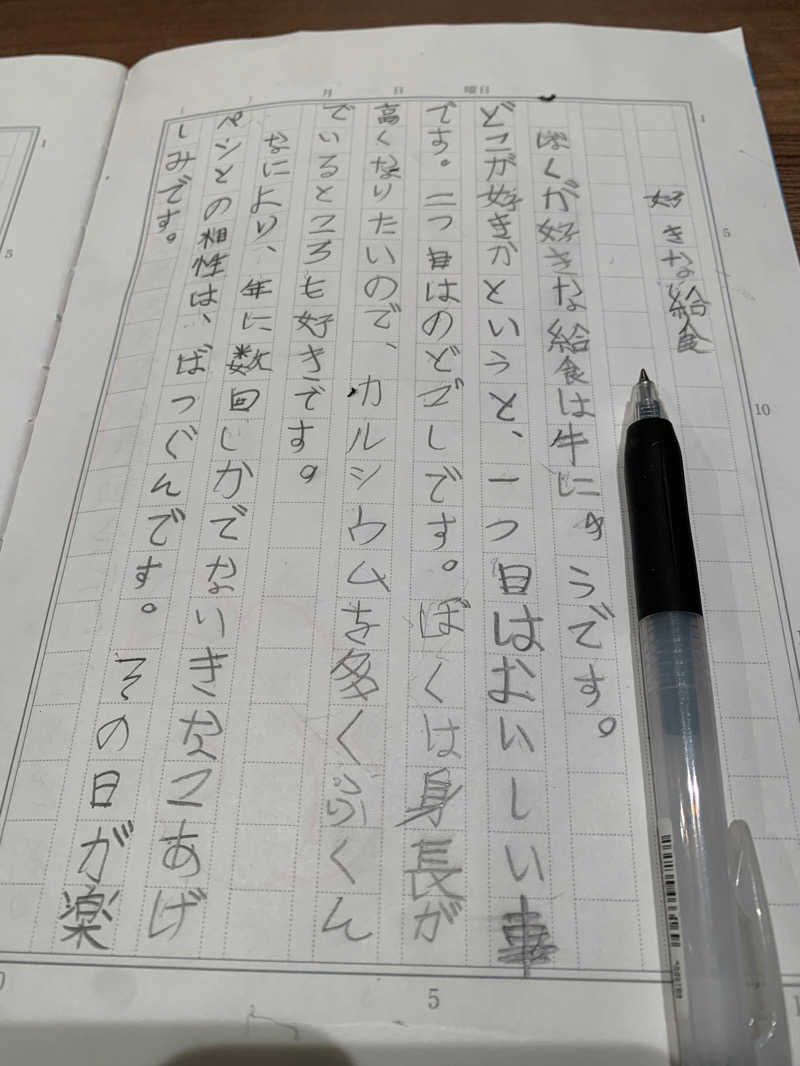 月 日 曜日
好きな給食
ぼくが好きな給食は牛にゅうです。
どこが好きかというと、一つ目はおいしい事
です。二つ目はのどごしです。ぼくは身長が
高くなりたいので、カルシウムを多くふくん
でいるところも好きです。
なにより、年に数回しかでないきなこあげ
パンとの相性は、ばつぐんです。その日が楽
しみです。
1
5
10
5
1
5